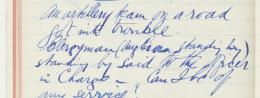 An artillery team on a road
got into trouble.
Clergyman (
standing by said to the officer
in charge — Can I be of
any service?